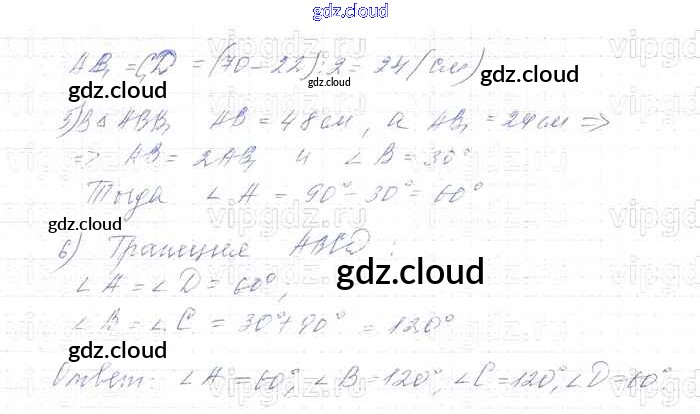 gdz.cloud
AB₁ = C₁D = (70 - 22) : 2 = 24 (см)
gdz.cloud
gdz.cloud
5) В Δ ABB₁ AB = 48 см, а AB₁ = 24 см =>
=> AB = 2AB₁ и ∠B = 30°
Тогда ∠A = 90° - 30° = 60°
gdz.cloud
6) Трапеция ABCD:
gdz.cloud
∠A = ∠D = 60°;
∠B = ∠C = 30° + 90° = 120°
gdz.cloud
Ответ: ∠A = 60°, ∠B = 120°, ∠C = 120°, ∠D = 60°.
gdz.cloud
gdz.cloud